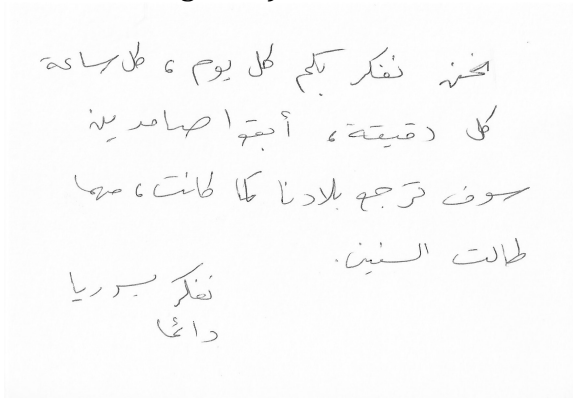 نحن نفكر بكم كل يوم، كل ساعة
كل دقيقة، أبقوا صامدين
سوف ترجع بلادنا كما كانت، مهما
طالت السنين.
نفكر بسوريا
دائما